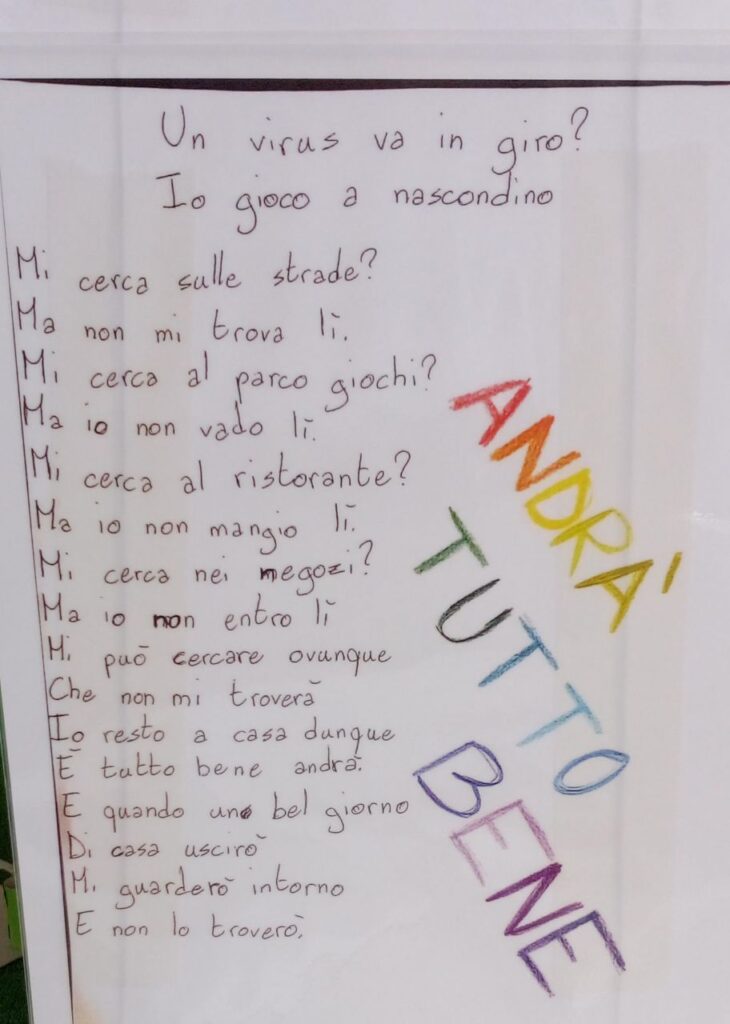 Un virus va in giro?
Io gioco a nascondino
Mi cerca sulle strade?
Ma non mi trova lì.
Mi cerca al parco giochi?
Ma io non vado lì.
Mi cerca al ristorante?
Ma io non mangio lì.
Mi cerca nei negozi?
Ma io non entro lì
Mi può cercare ovunque
Che non mi troverà
Io resto a casa dunque
E tutto bene andrà.
E quando uno bel giorno
Di casa uscirò
Mi guarderò intorno
E non lo troverò.
ANDRA'
TUTTO
BENE